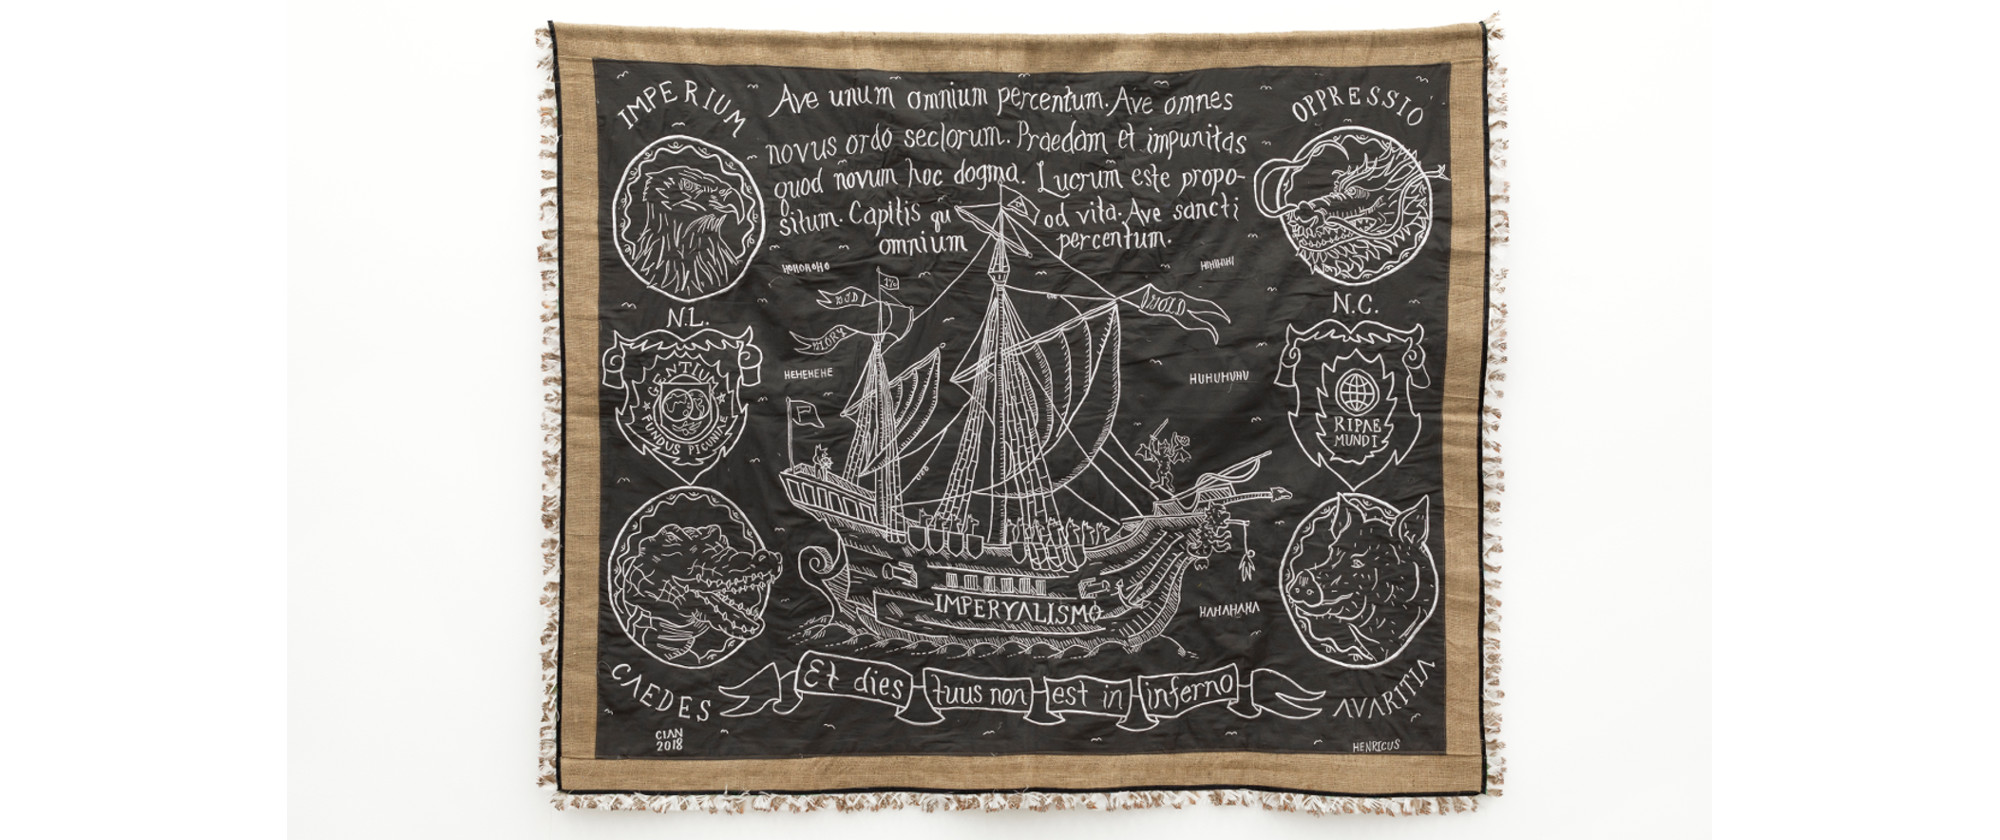 IMPERIUM
Ave unum omnium percentum. Ave omnes
novus ordo seclorum. Praedam et impunitas
quod novum hoc dogma. Lucrum este propo-
situm. Capitis qu od vita. Ave sancti
omnium percentum.
OPPRESSIO
HOHOHOHO
HIHIHIHI
1%
GOLD
GLORY
N.L.
N.C.
HEHEHEHE
HUHUHUHU
GENTIUM
FUNDUS PECUNIAE
RIPAE
MUNDI
IMPERYALISMO
HAHAHAHA
Et dies tuus non est in inferno
CAEDES
AVARITIA
CIAN
2018
HENRICUS